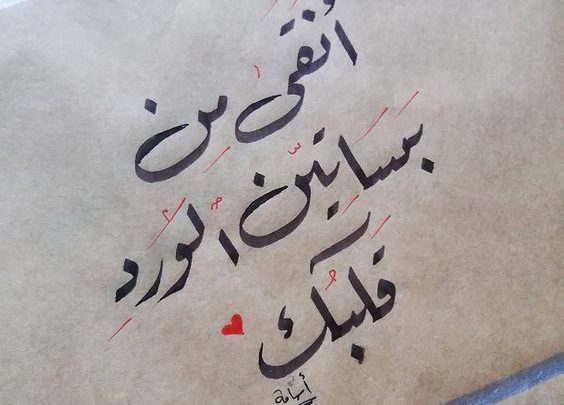 أنقى من
بساتين الورد
قلبك
أسامة